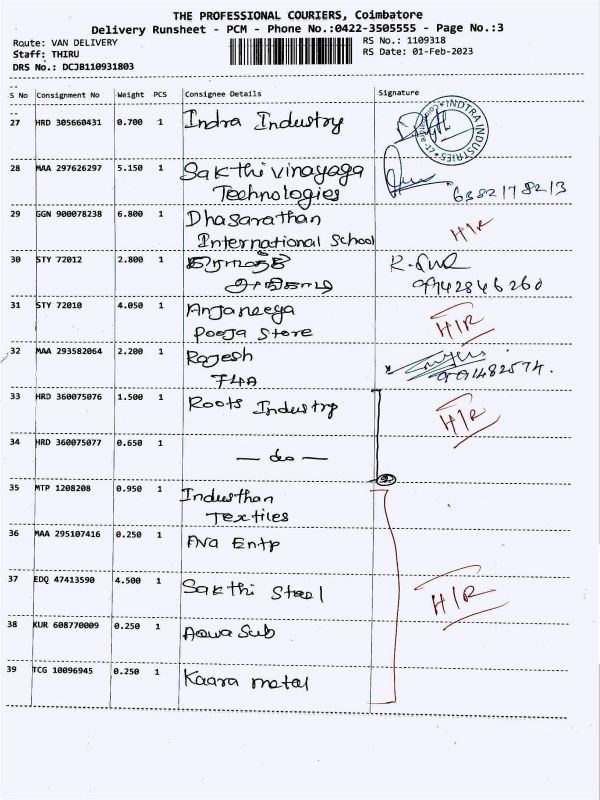 THE PROFESSIONAL COURIERS, Coimbatore
Delivery Runsheet - PCM - Phone No.:0422-3505555 - Page No.:3
Route: VAN DELIVERY RS No.: 1109318
Staff: THIRU RS Date: 01-Feb-2023
DRS No.: DCJB110931803
S No Consignment No Weight PCS Consignee Details Signature
27 HRD 305660431 0.700 1 Indra Industry
INDTRA INDUSTRIES
28 MAA 297626297 5.150 1 Sakthivinayaga
Technologies 6382178213
29 GGN 900078238 6.800 1 Dhasarathan
International School H/R
30 STY 72012 2.800 1
9942846260
31 STY 72010 4.050 1 Anjaneega
Pooja Store H/R
32 MAA 293582064 2.200 1 Rajesh
F4A
33 HRD 360075076 1.500 1 Roots Industry H/R
34 HRD 360075077 0.650 1
— do —
35 MTP 1208208 0.950 1 Industhan
Textiles
36 MAA 295107416 0.250 1 Entp
37 EDQ 47413590 4.500 1 Sakthi Steel H/R
38 KUR 608770009 0.250 1 Aqua Sub
39 TCG 10096945 0.250 1 Kaara metal